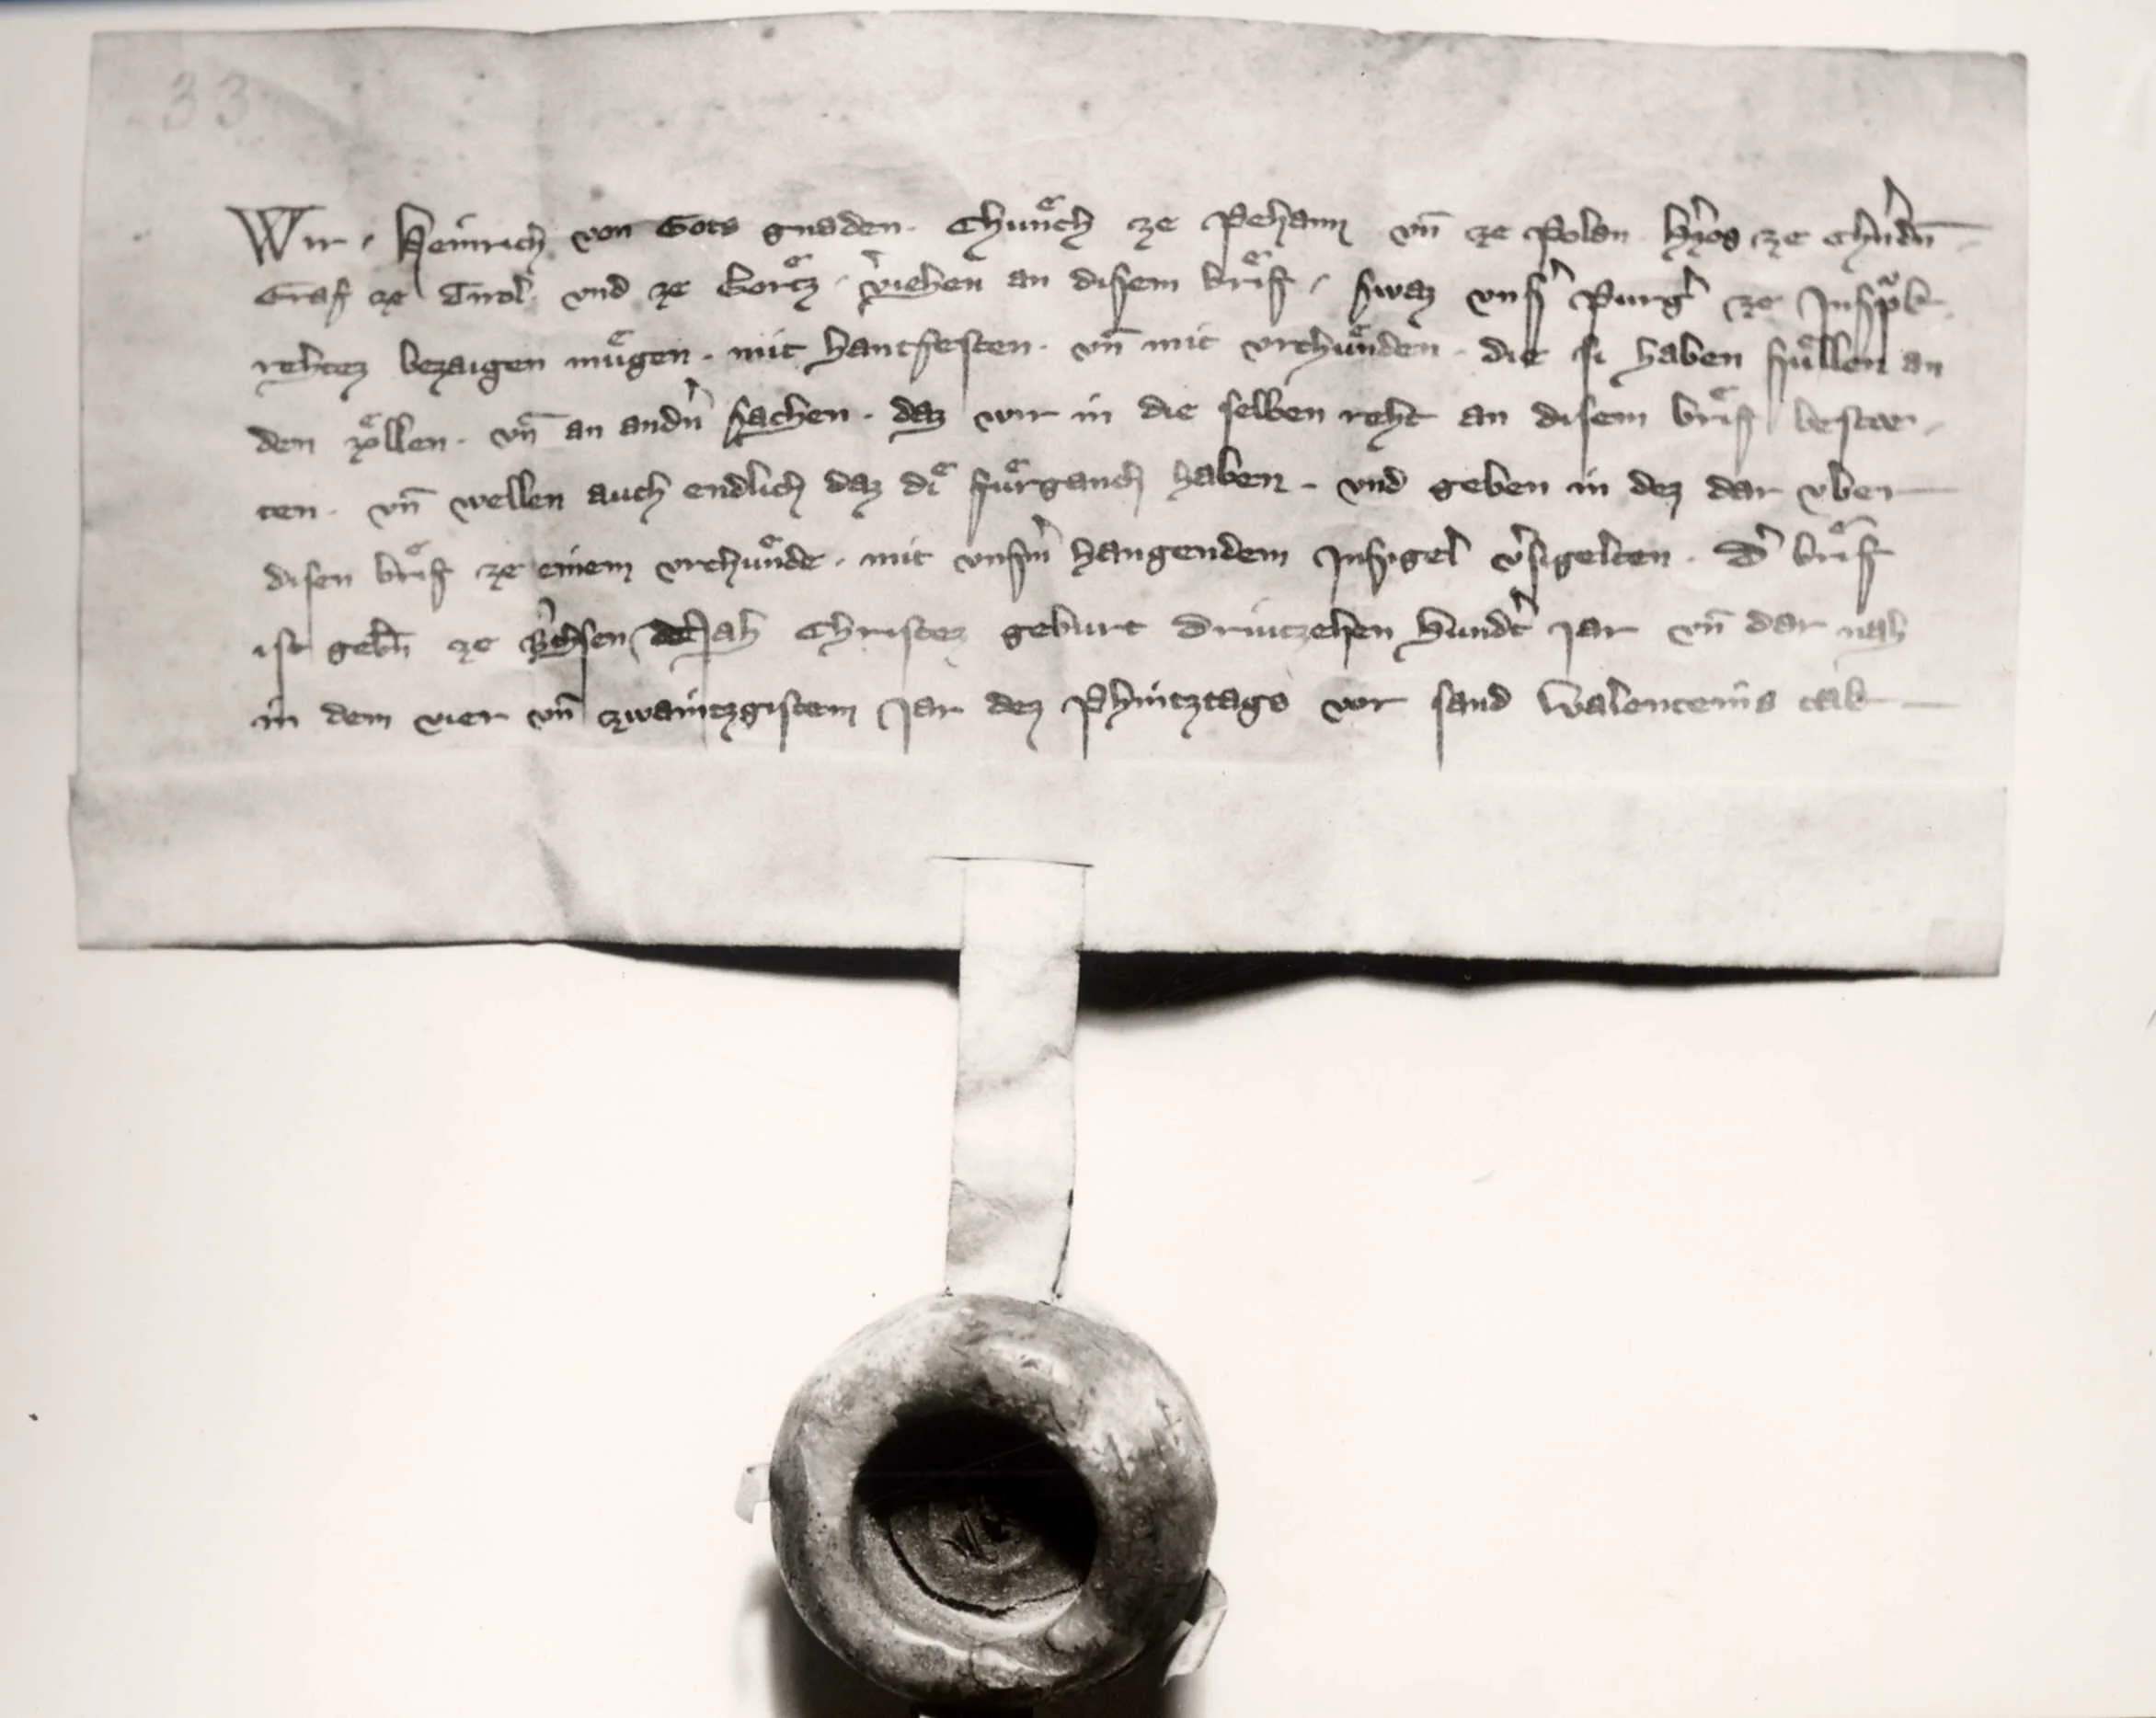 33
Wir · Heinrich von Gots gnaden · Chuͤnch ze Pehaim vn̄ ze Polan h'zog ze Ch'ndn̄
Graf ze Tirol vnd ze Goͤrtz · v'iehen an disem briͤf · swaz vns' Purg' ze Inspͦk
rehtez bezaigen muͤgen · mit hantfesten · vn̄ mit vrchuͤnden · die si haben suͤllen an
den zoͤllen · vn̄ an andn' sachen · daz wir in die selben reht an disem briͤf bestee
ten · vn̄ wellen auch endlich daz diͤ fuͤrganch haben · vnd geben in dez dar vber
disen briͤf ze einem vrchuͤnde · mit vnsm' hangendem Insigel v'sigelten · D' briͤf
ist gebn̄ ze nah Christez geburt driutzehen hundt' jar vn̄ dar nah
in dem vier vn̄ zwaintzgistem jar dez Phintztags vor sand Valenteins tak